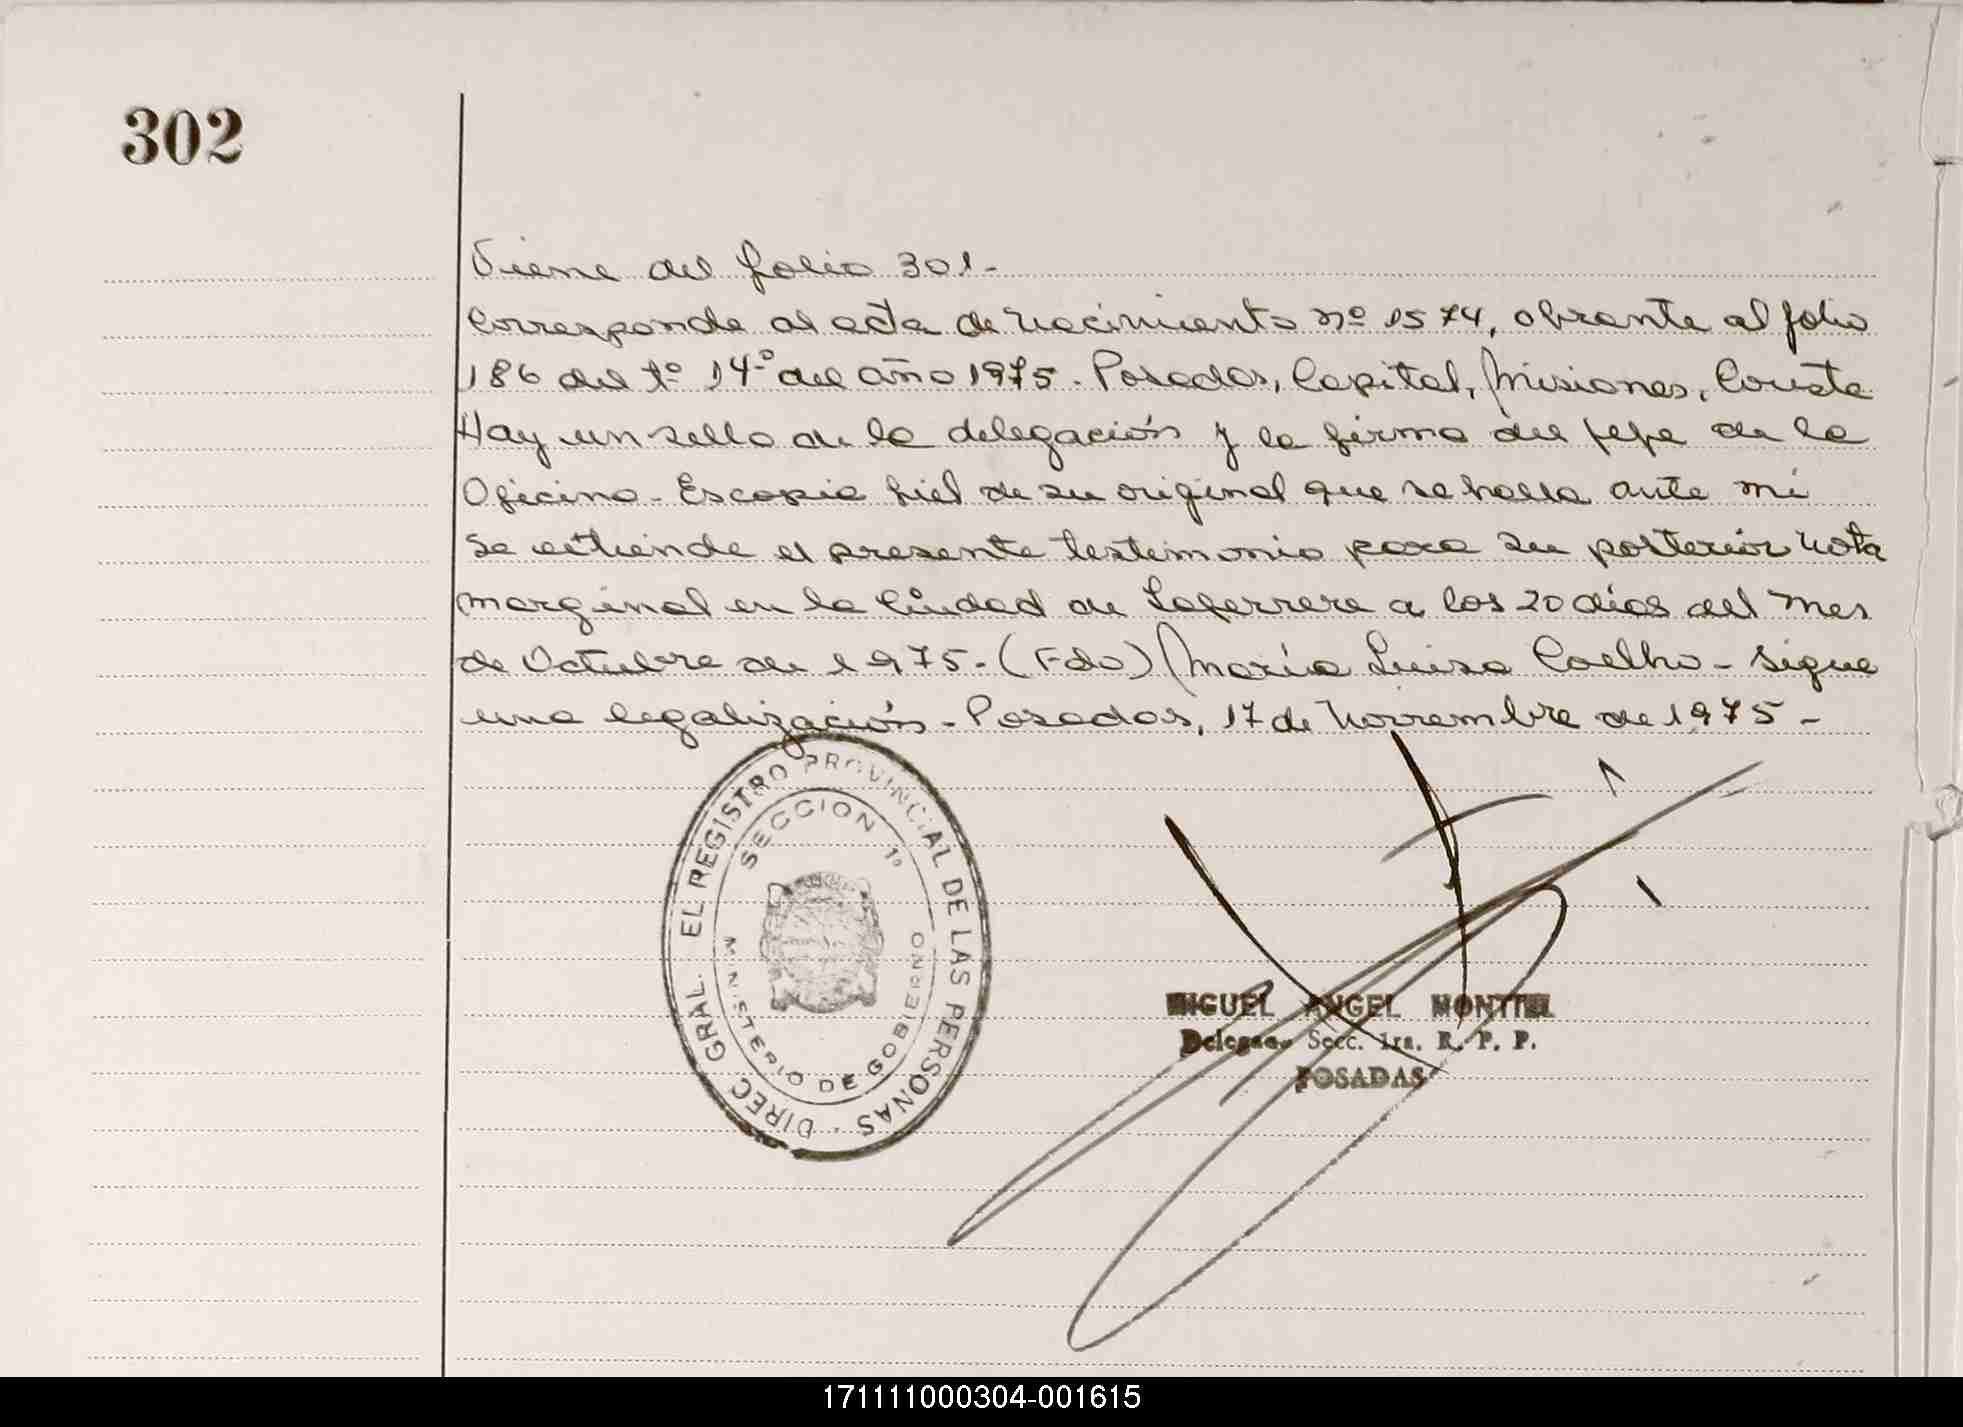 302
Viene del folio 301-
Corresponde al acta de Nacimiento nº 1574, obrante al folio
186 del tº 14º del año 1975. Posadas, Capital, Misiones, Conste
Hay un sello de la delegación y la firma del jefe de la
Oficina- Es copia fiel de su original que se halla ante mi
Se extiende el presente testimonio para su posterior Nota
marginal en la Ciudad de Laferrere a los 20 días del mes
de Octubre de 1975.- (Fdo) María Luisa Coelho- sigue
una legalización- Posadas, 17 de Noviembre de 1975-
DIREC. GRAL. EL REGISTRO PROVINCIAL DE LAS PERSONAS
SECCION 1º
MINISTERIO DE GOBIERNO
MIGUEL ANGEL MONTIEL
Delegado Secc. 1ra. R. P. P.
POSADAS
171111000304-001615